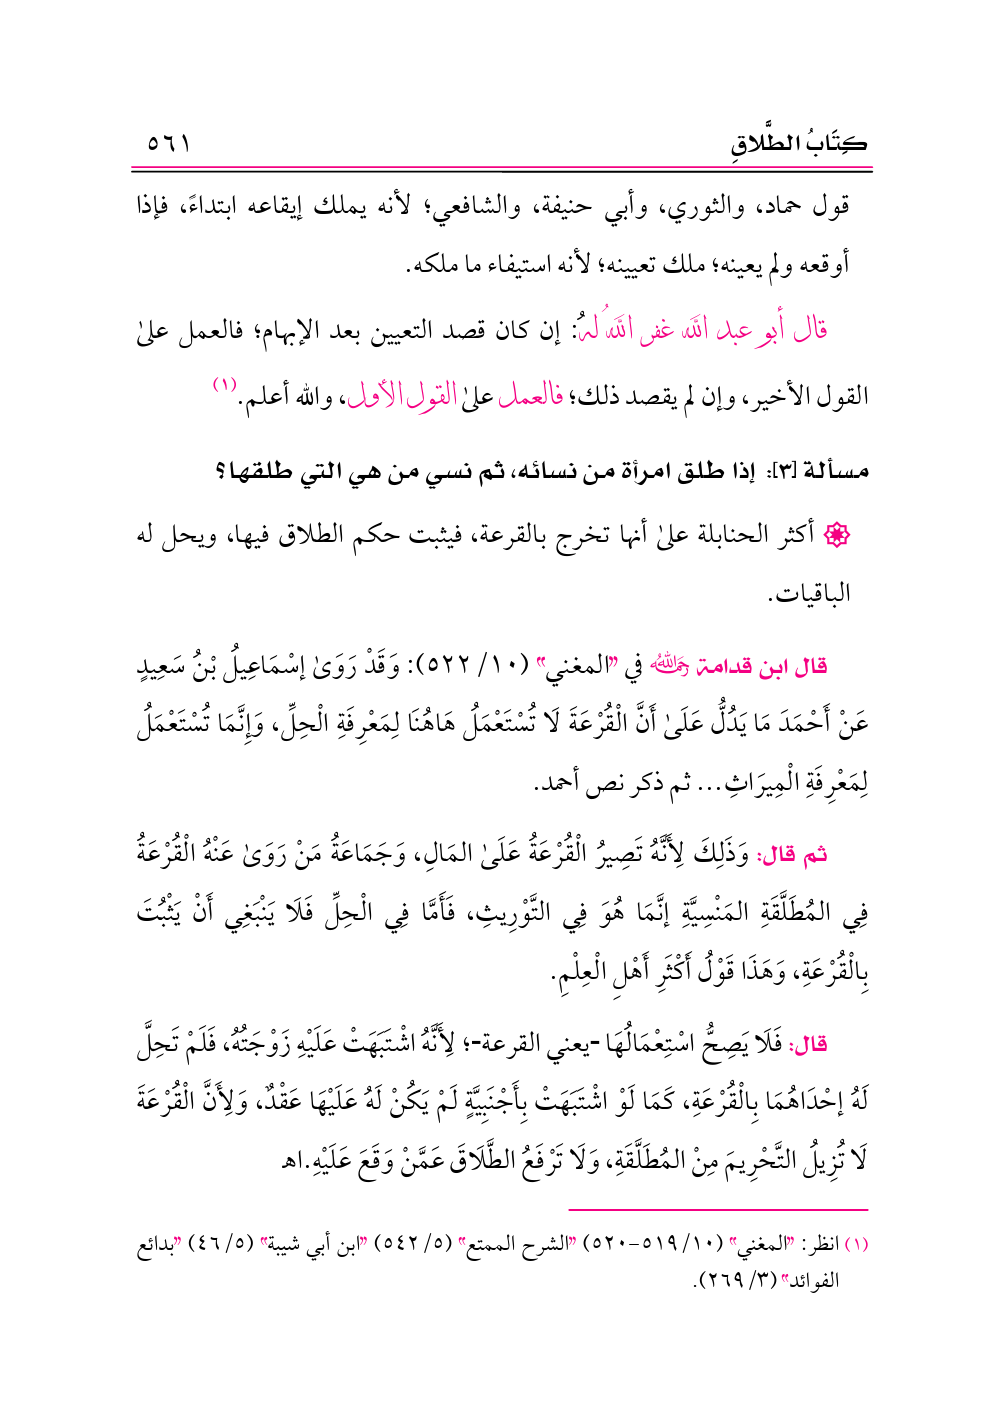 كِتَابُ الطَّلَاقِ ٥٦١
قول حماد، والثوري، وأبي حنيفة، والشافعي؛ لأنه يملك إيقاعه ابتداءً، فإذا
أوقعه ولم يعينه؛ ملك تعيينه؛ لأنه استيفاء ما ملكه.
قال أبو عبد الله غفر اللهُ لهُ: إن كان قصد التعيين بعد الإبهام؛ فالعمل علىٰ
القول الأخير، وإن لم يقصد ذلك؛ فالعمل علىٰ القول الأول، والله أعلم.(١)
مسألة [٣]: إذا طلق امرأة من نسائه، ثم نسي من هي التي طلقها؟
أكثر الحنابلة علىٰ أنها تخرج بالقرعة، فيثبت حكم الطلاق فيها، ويحل له
الباقيات.
قال ابن قدامة رحمه الله في "المغني" (١٠/ ٥٢٢): وَقَدْ رَوَىٰ إسْمَاعِيلُ بْنُ سَعِيدٍ
عَنْ أَحْمَدَ مَا يَدُلُّ عَلَىٰ أَنَّ الْقُرْعَةَ لَا تُسْتَعْمَلُ هَاهُنَا لِمَعْرِفَةِ الْحِلِّ، وَإِنَّمَا تُسْتَعْمَلُ
لِمَعْرِفَةِ الْمِيرَاثِ... ثم ذكر نص أحمد.
ثم قال: وَذَلِكَ لِأَنَّهُ تَصِيرُ الْقُرْعَةُ عَلَىٰ المَالِ، وَجَمَاعَةُ مَنْ رَوَىٰ عَنْهُ الْقُرْعَةُ
فِي المُطَلَّقَةِ المَنْسِيَّةِ إنَّمَا هُوَ فِي التَّوْرِيثِ، فَأَمَّا فِي الْحِلِّ فَلَا يَنْبَغِي أَنْ يَثْبُتَ
بِالْقُرْعَةِ، وَهَذَا قَوْلُ أَكْثَرِ أَهْلِ الْعِلْمِ.
قال: فَلَا يَصِحُّ اسْتِعْمَالُهَا -يعني القرعة-؛ لِأَنَّهُ اشْتَبَهَتْ عَلَيْهِ زَوْجَتُهُ، فَلَمْ تَحِلَّ
لَهُ إحْدَاهُمَا بِالْقُرْعَةِ، كَمَا لَوْ اشْتَبَهَتْ بِأَجْنَبِيَّةٍ لَمْ يَكُنْ لَهُ عَلَيْهَا عَقْدٌ، وَلِأَنَّ الْقُرْعَةَ
لَا تُزِيلُ التَّحْرِيمَ مِنْ المُطَلَّقَةِ، وَلَا تَرْفَعُ الطَّلَاقَ عَمَّنْ وَقَعَ عَلَيْهِ.اهـ
(١) انظر: "المغني" (١٠/ ٥١٩-٥٢٠) "الشرح الممتع" (٥/ ٥٤٢) "ابن أبي شيبة" (٥/ ٤٦) "بدائع
الفوائد" (٣/ ٢٦٩).